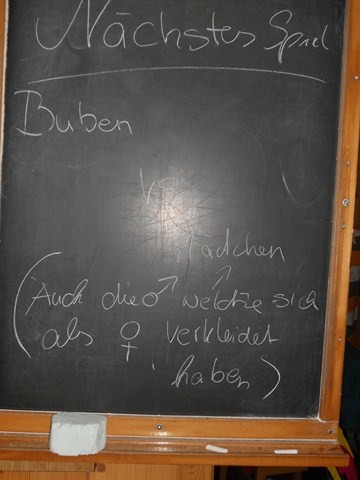 Nächstes Spiel
Buben
vs
Mädchen
(Auch die ♂ welche sich
als ♀ verkleidet
haben)